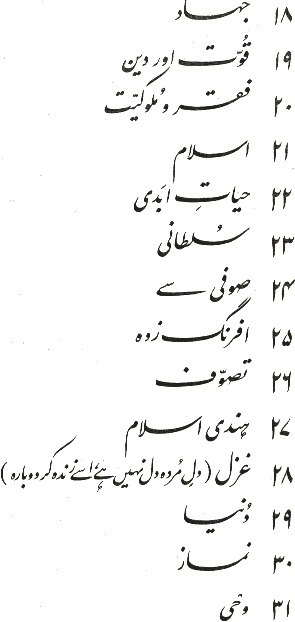 ۱۸ جہاد
۱۹ قُوّت اور دین
۲۰ فقر و مُلوکیّت
۲۱ اسلام
۲۲ حیاتِ ابَدی
۲۳ سُلطانی
۲۴ صوفی سے
۲۵ افرنگ زدہ
۲۶ تصوّف
۲۷ ہِندی اسلام
۲۸ غزل (دلِ مُردہ دل نہیں ہے، اسے زندہ کر دوبارہ)
۲۹ دُنیا
۳۰ نماز
۳۱ وحی